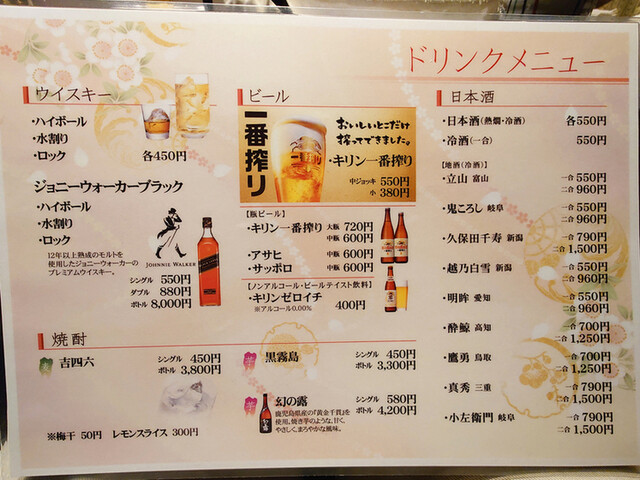 ドリンクメニュー
ウイスキー
・ハイボール
・水割り
・ロック 各450円
ジョニーウォーカーブラック
・ハイボール
・水割り
・ロック
12年以上熟成のモルトを
使用したジョニーウォーカーの
プレミアムウイスキー。
JOHNNIE WALKER
シングル 550円
ダブル 880円
ボトル 8,000円
ビール
一番搾り
おいしいとこだけ
搾ってできました。
・キリン一番搾り
中ジョッキ 550円
小 380円
【瓶ビール】
・キリン一番搾り 大瓶 720円
中瓶 600円
・アサヒ 中瓶 600円
・サッポロ 中瓶 600円
【ノンアルコール・ビールテイスト飲料】
・キリンゼロイチ 400円
※アルコール0.00%
焼酎
吉四六 シングル 450円
ボトル 3,800円
※梅干 50円 レモンスライス 300円
黒霧島 シングル 450円
ボトル 3,300円
幻の露 シングル 580円
ボトル 4,200円
鹿児島県産の「黄金千貫」を
使用。焼き芋のような、甘く、
やさしく、まろやかな風味。
日本酒
・日本酒(熱燗・冷酒) 各550円
・冷酒(一合) 550円
【地酒(冷酒)】
・立山 富山 一合 550円
二合 960円
・鬼ころし 岐阜 一合 550円
二合 960円
・久保田千寿 新潟 一合 790円
二合 1,500円
・越乃白雪 新潟 一合 550円
二合 960円
・明眸 愛知 一合 550円
二合 960円
・酔鯨 高知 一合 700円
二合 1,250円
・鷹勇 鳥取 一合 700円
二合 1,250円
・真秀 三重 一合 790円
二合 1,500円
・小左衛門 岐阜 一合 790円
二合 1,500円